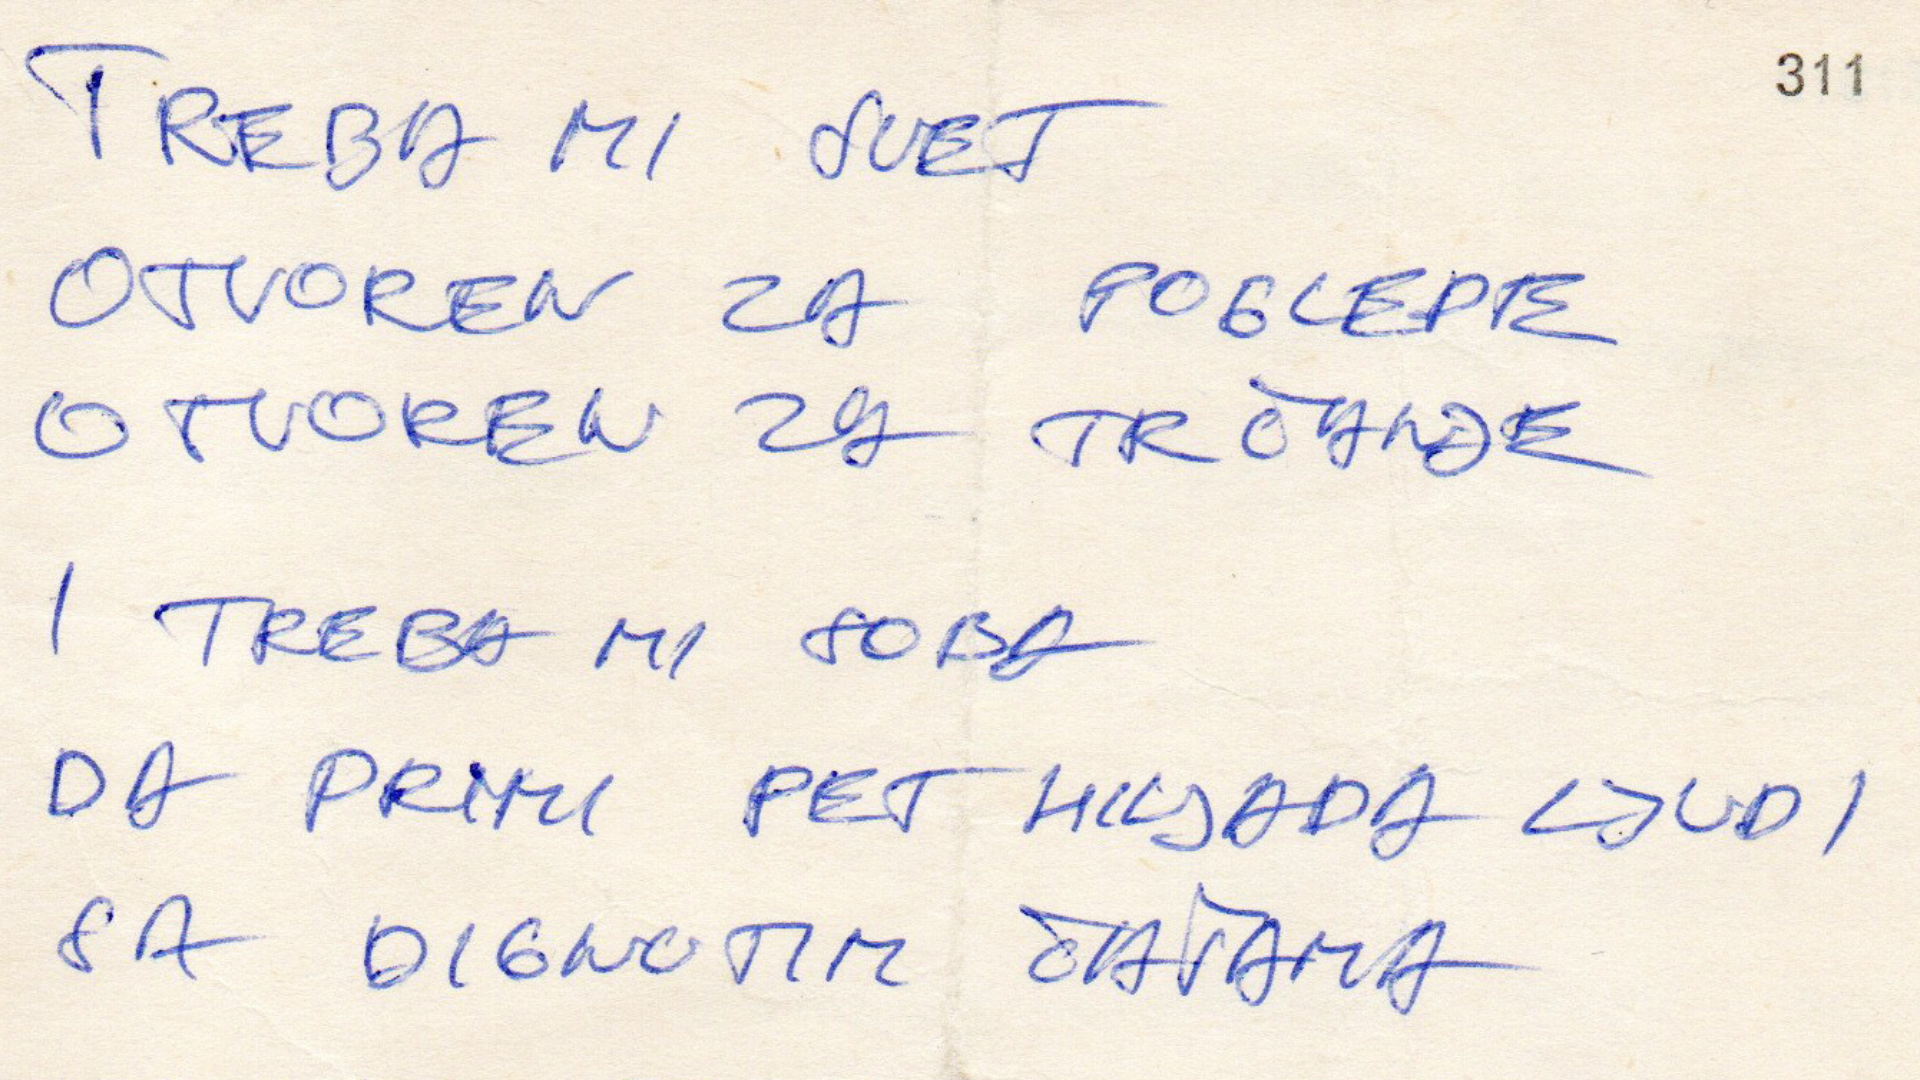 311
TREBA MI SVET
OTVOREN ZA POGLEDE
OTVOREN ZA TRČANJE
I TREBA MI SOBA
DA PRIMI PET HILJADA LJUDI
SA DIGNUTIM ČAŠAMA